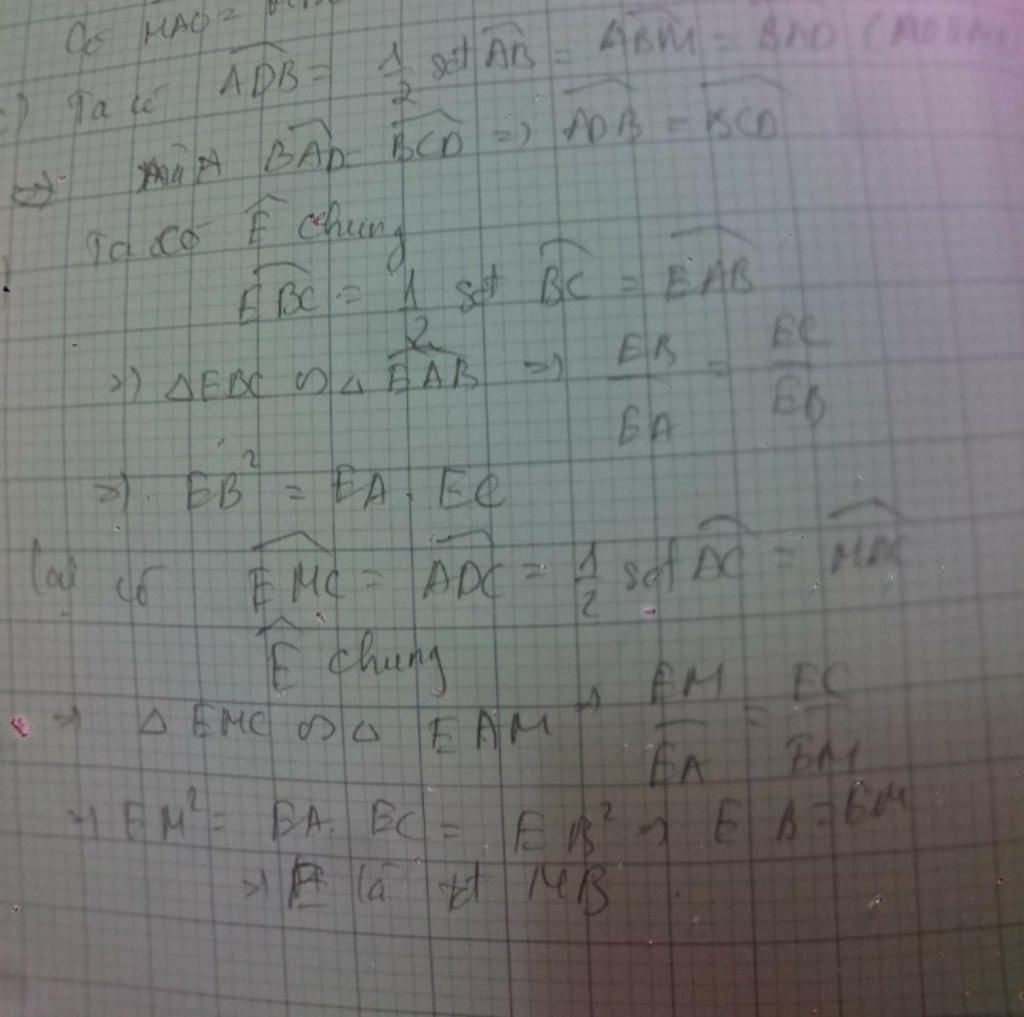 Có MAO =
c) Ta có ADB = 1/2 sđt AB = ABM = BAD
=> Mà BAD = BCD => ADB = BCD
Ta có E chung
EBC = 1/2 sđt BC = EAB
=> △EBC ∽ △EAB => EB/EA = EC/EB
=> EB² = EA . EC
Ta có EMC = ADC = 1/2 sđt AC = MAC
E chung
=> △EMC ∽ △EAM => EM/EA = EC/EM
=> EM² = EA. EC = EB² => EB = EM
=> E là tđ MB